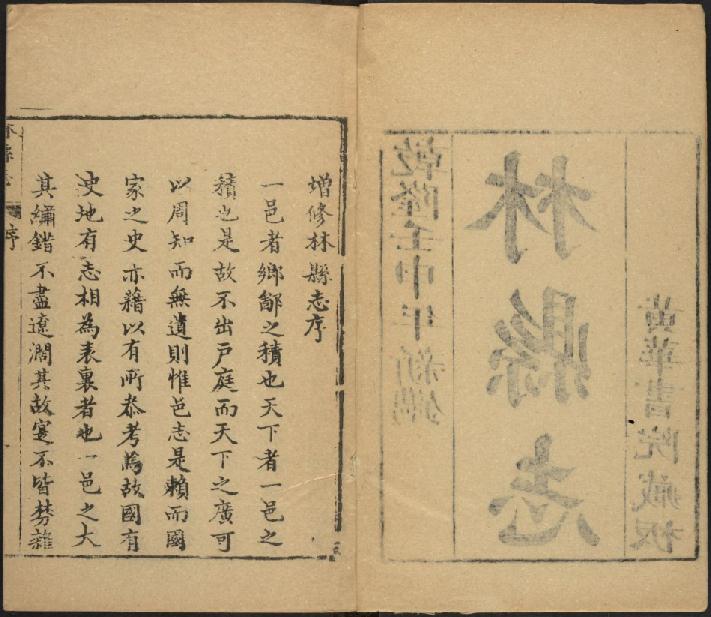 乾隆壬申年新鐫
林縣志
黃華書院藏板
增修林縣志序
一邑者鄉鄙之積也天下者一邑之
積也是故不出戸庭而天下之廣可
以周知而無遺則惟邑志是賴而國
家之史亦藉以有所叅考焉故國有
史地有志相為表裏者也一邑之大
其繡錯不盡遼濶其故寔不皆棼雜
林縣志 序